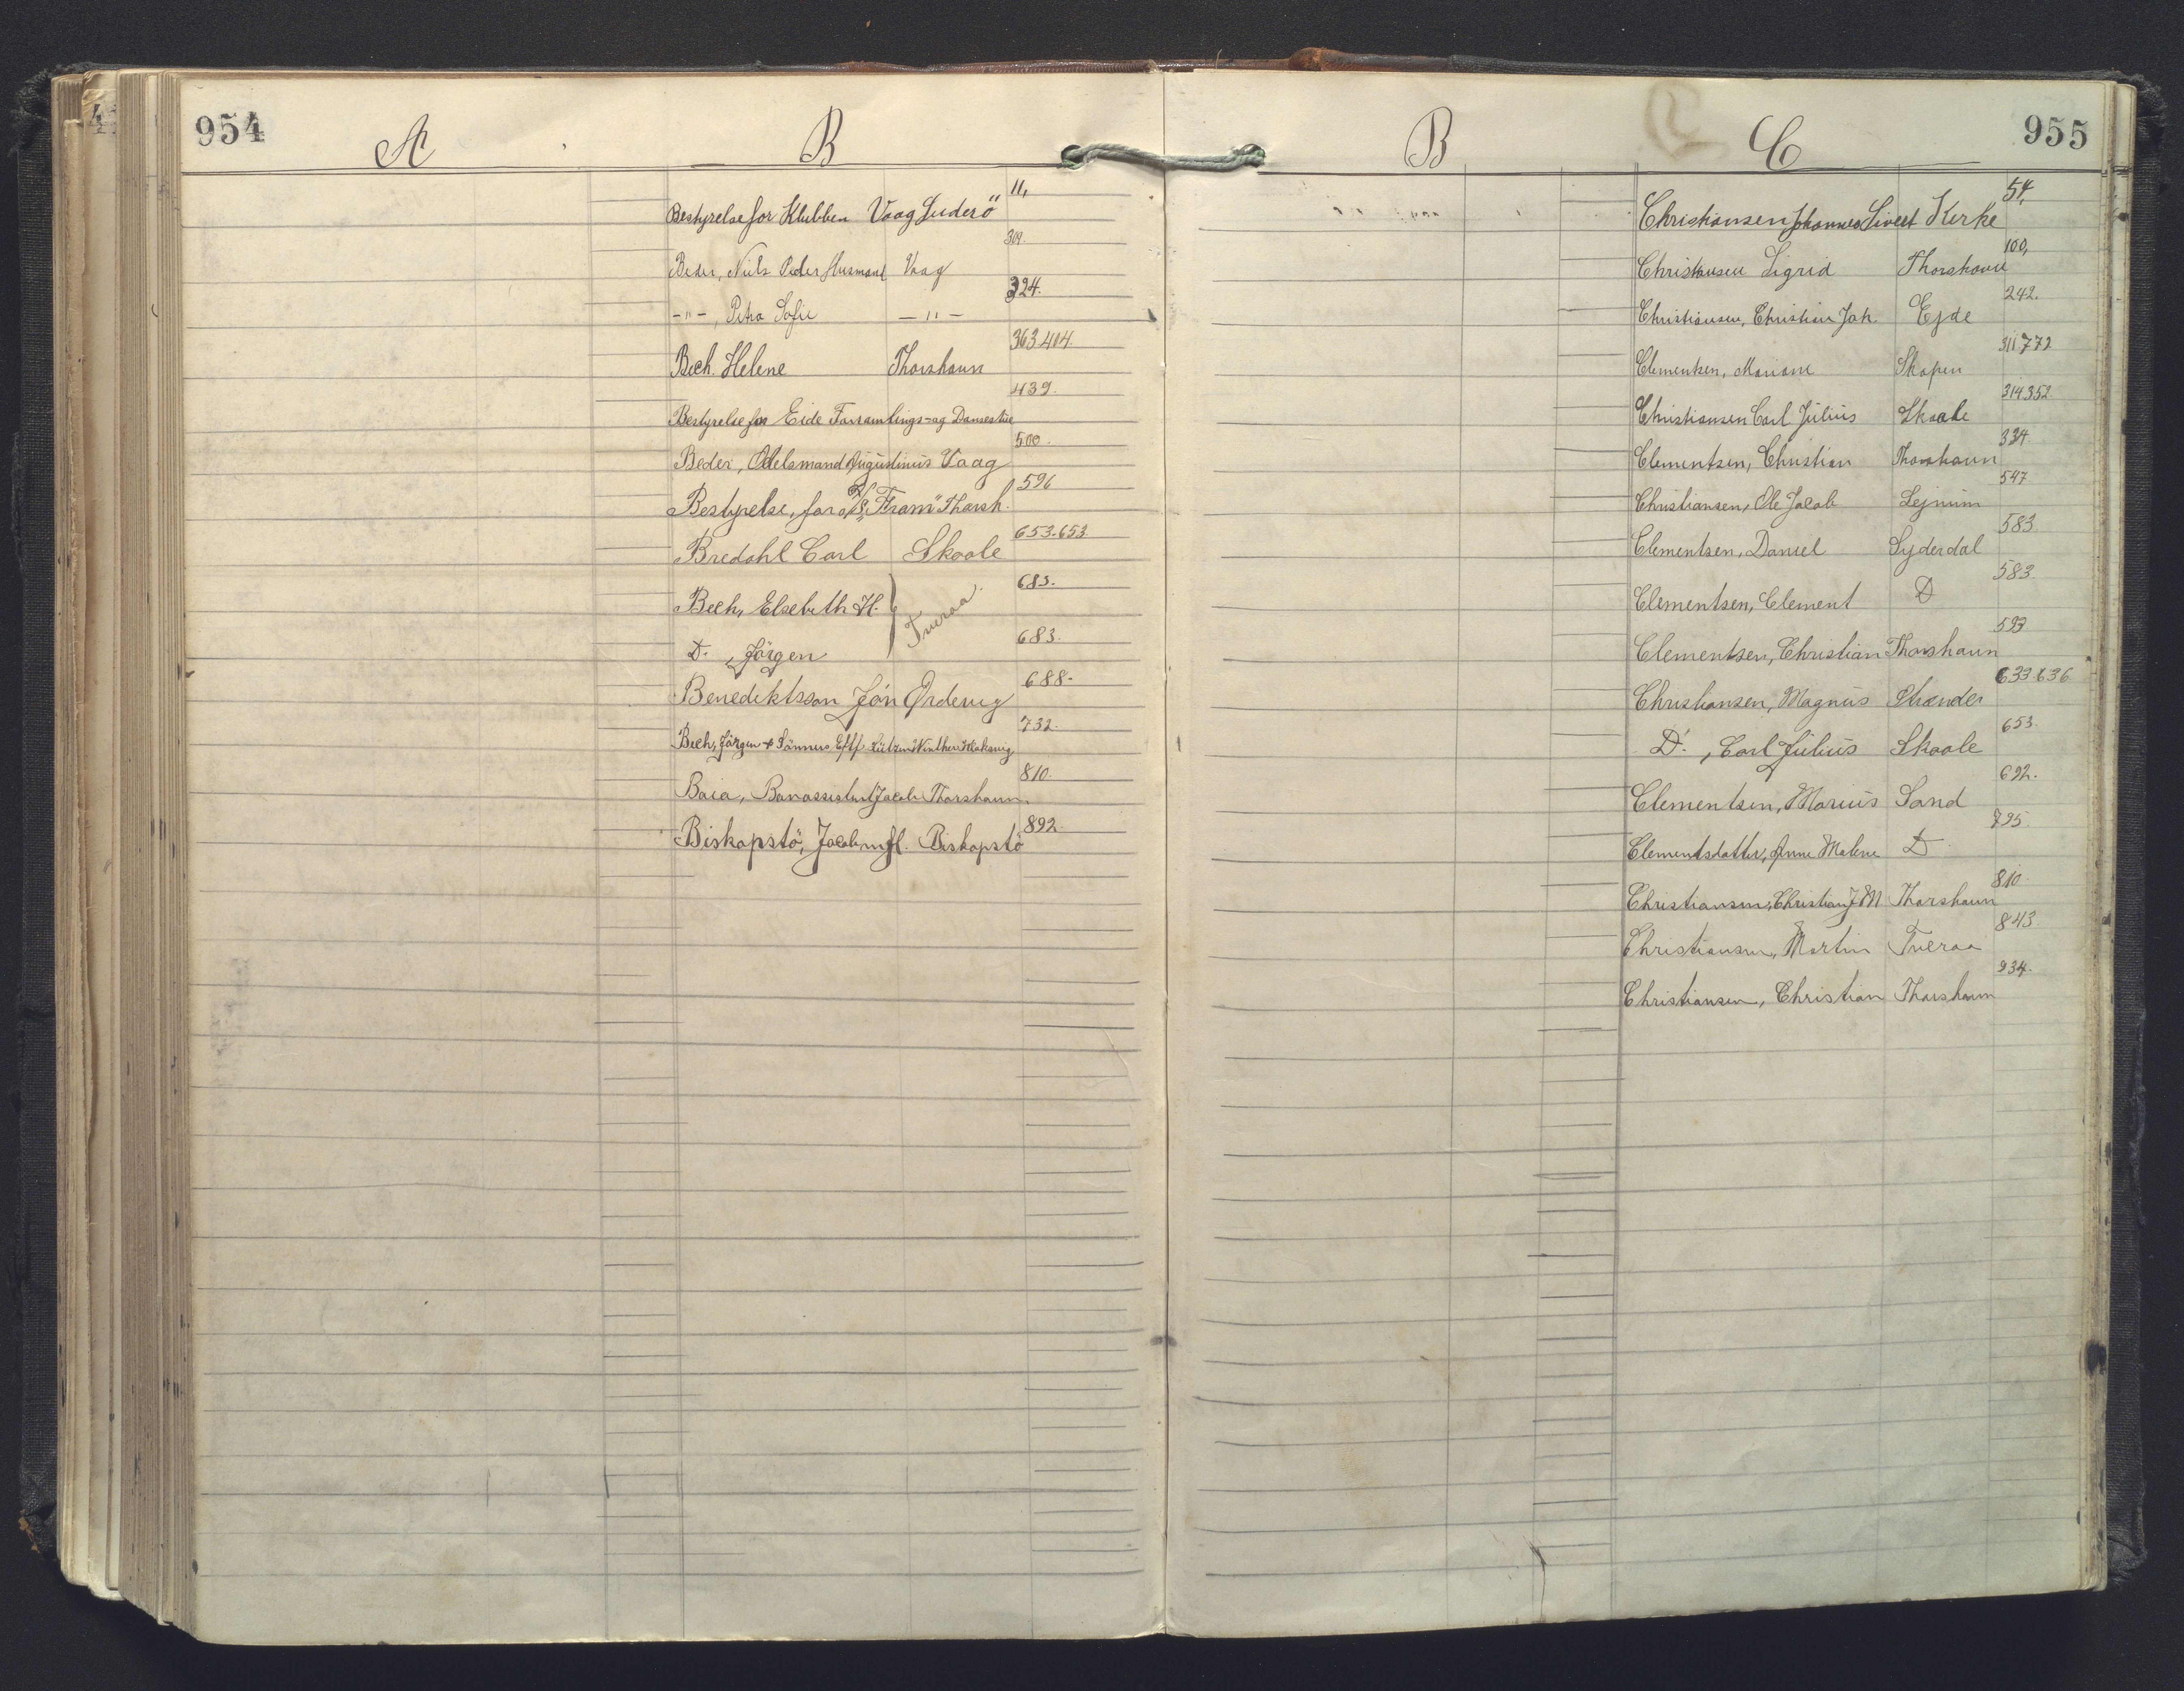 954
A B
Bestyrelse for Klubben Vaag Suderö 11,
Beder, Niels Peder Husmand Vaag 309.
-"-, Petra Sofie -"- 324.
Bech. Helene Thorshavn 363.414.
Bestyrelse for Eide Forsamlings-og Dansestue 439.
Beder, Odelsmand Augustinus Vaag 500.
Bestyrelse, for "Fram" Thorsh. 596
Bredahl Carl Skaale 653.653
Bech, Elsebeth H. Tveraa. 683.
D. , Jörgen 683.
Benediktsson Jón Örderig 688.
Bech, Jörgen & Sönners Eftf. 732.
Baia, Jacob Thorshavn. 810.
Biskopstö, Jacob m.fl. Biskopstö 892.
B C 955
Christiansen, Johannes Sivert Kirke 54,
Christiansen Sigrid Thorshavn 100,
Christiansen, Christian Joh. Ejde 242.
Clementsen, Mariane Skopen 311 772
Christiansen Carl Julius Skaale 314.352
Clementsen, Christian Thorshavn 334.
Christiansen, Ole Jacob Lejnum 547
Clementsen, Daniel Syderdal 583.
Clementsen, Clement D 583.
Clementsen, Christian Thorshavn 593
Christiansen, Magnus Strender 633.636
D. , Carl Julius Skaale 653
Clementsen, Marius Sand 692.
Clementsdatter, Anne Malene D 795.
Christiansen, Christian J M Thorshavn 810.
Christiansen, Martin Tveraa 843
Christiansen, Christian Thorshavn 934.